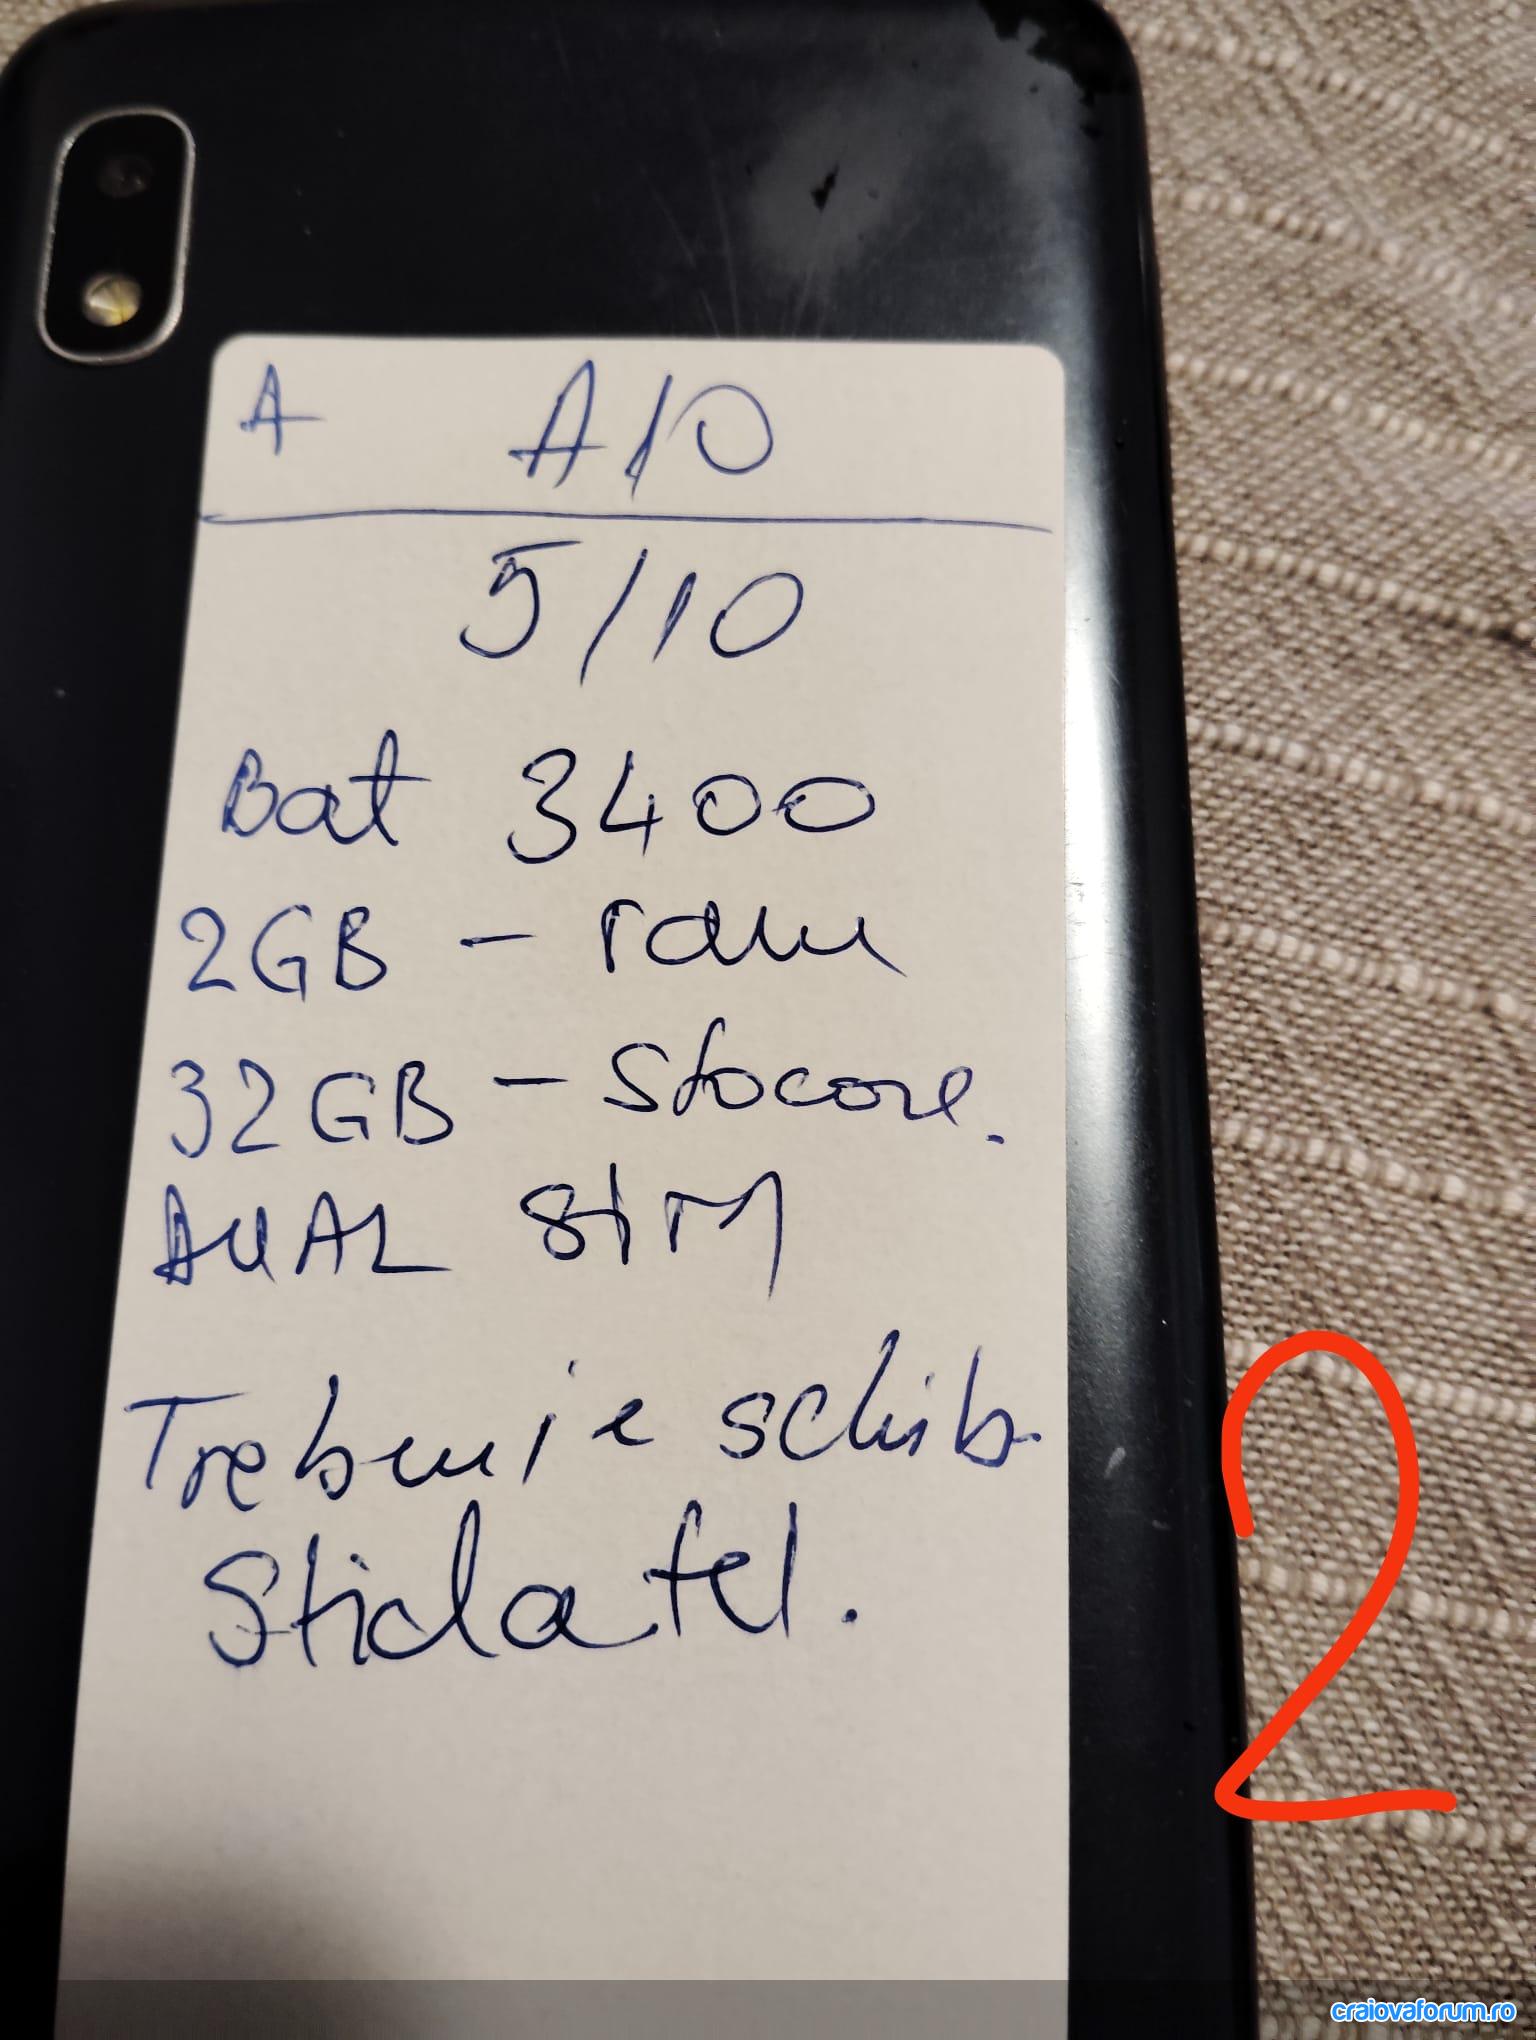 A A10
5/10
Bat 3400
2GB - ram
32GB - stocare.
DUAL SIM
Trebuie schib.
Sticla tel.
2
craiovaforum.ro